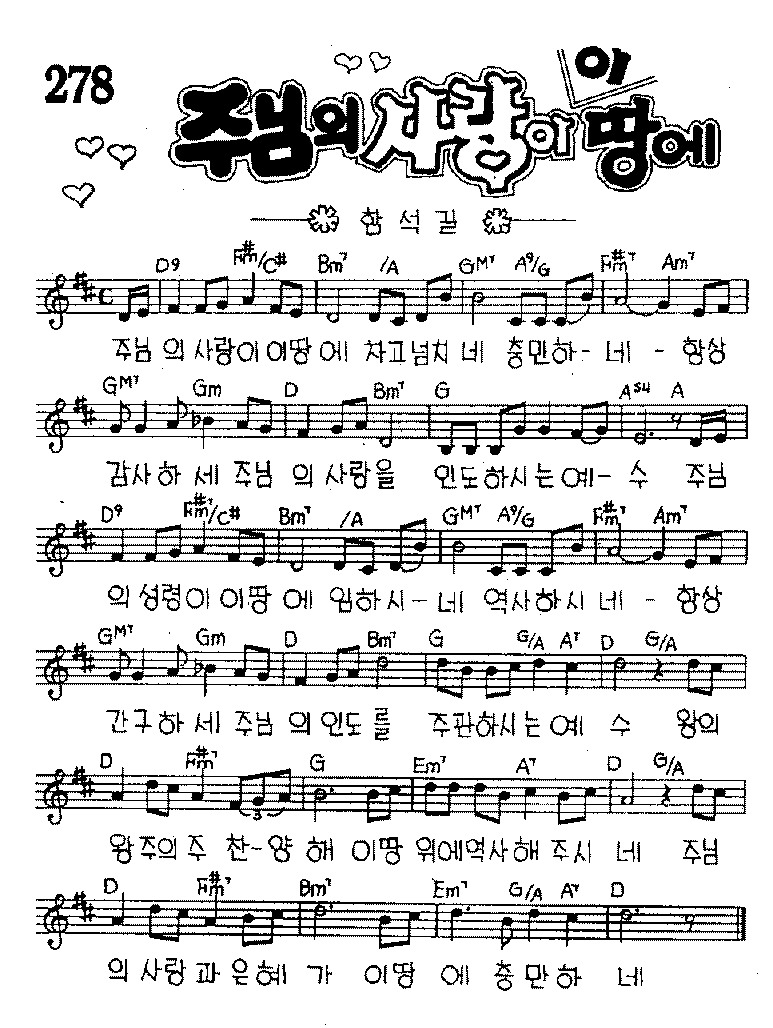 278
주님의 사랑이 이 땅에
함석길
D9 F#m/C# Bm7 /A GM7 A9/G F#m7 Am7
주님의 사랑이 이땅에 차고넘치네 충만하-네- 항상
GM7 Gm D Bm7 G Asu4 A
감사하세 주님의 사랑을 인도하시는 예-수 주님
D9 F#m7/C# Bm7 /A GM7 A9/G F#m7 Am7
의 성령이 이땅에 임하시-네 역사하시네- 항상
GM7 Gm D Bm7 G G/A A7 D G/A
간구하세 주님의 인도를 주관하시는 예수 왕의
D F#m7 G Em7 A7 D G/A
3
왕 주의 주 찬-양해 이땅 위에 역사해 주시네 주님
D F#m7 Bm7 Em7 G/A A7 D
의 사랑과 은혜가 이땅에 충만하네